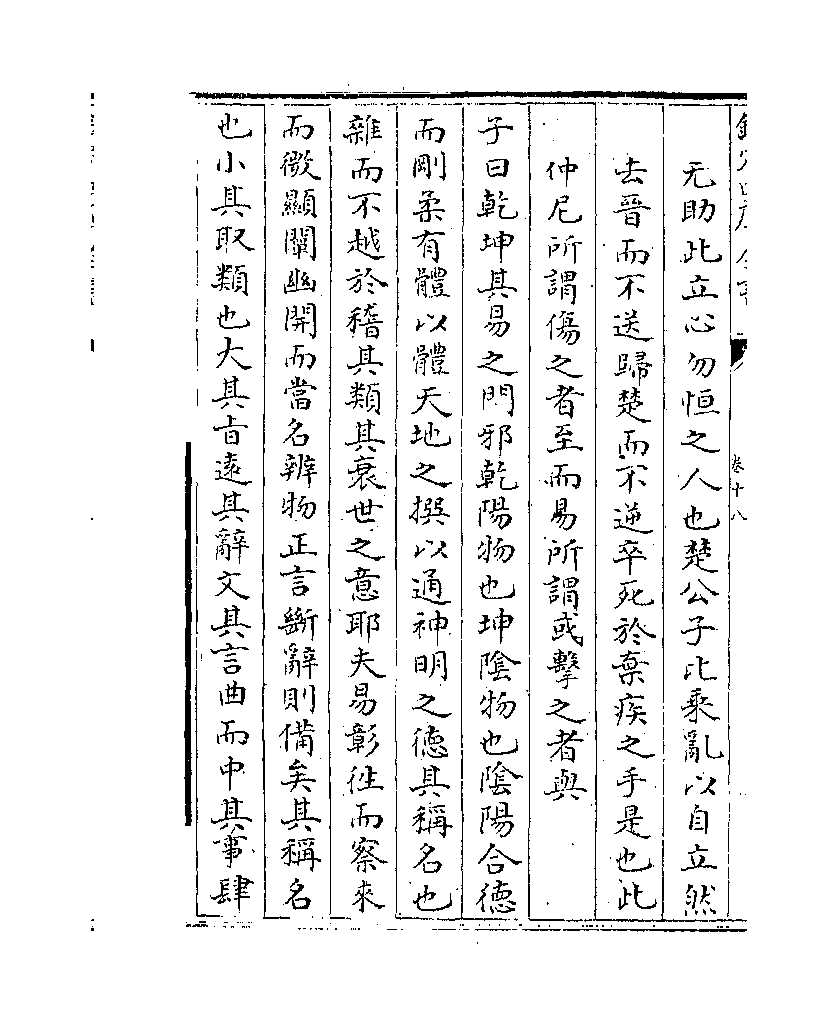 欽定四庫全書
卷十八
无助此立心勿恒之人也楚公子比乘亂以自立然
去晉而不送歸楚而不逆卒死於棄疾之手是也此
仲尼所謂傷之者至而易所謂或擊之者與
子曰乾坤其易之門邪乾陽物也坤隂物也隂陽合德
而剛柔有體以體天地之撰以通神明之德其稱名也
雜而不越於稽其類其衰世之意耶夫易彰徃而察來
而微顯闡幽開而當名辨物正言斷辭則備矣其稱名
也小其取類也大其㫖逺其辭文其言曲而中其事肆